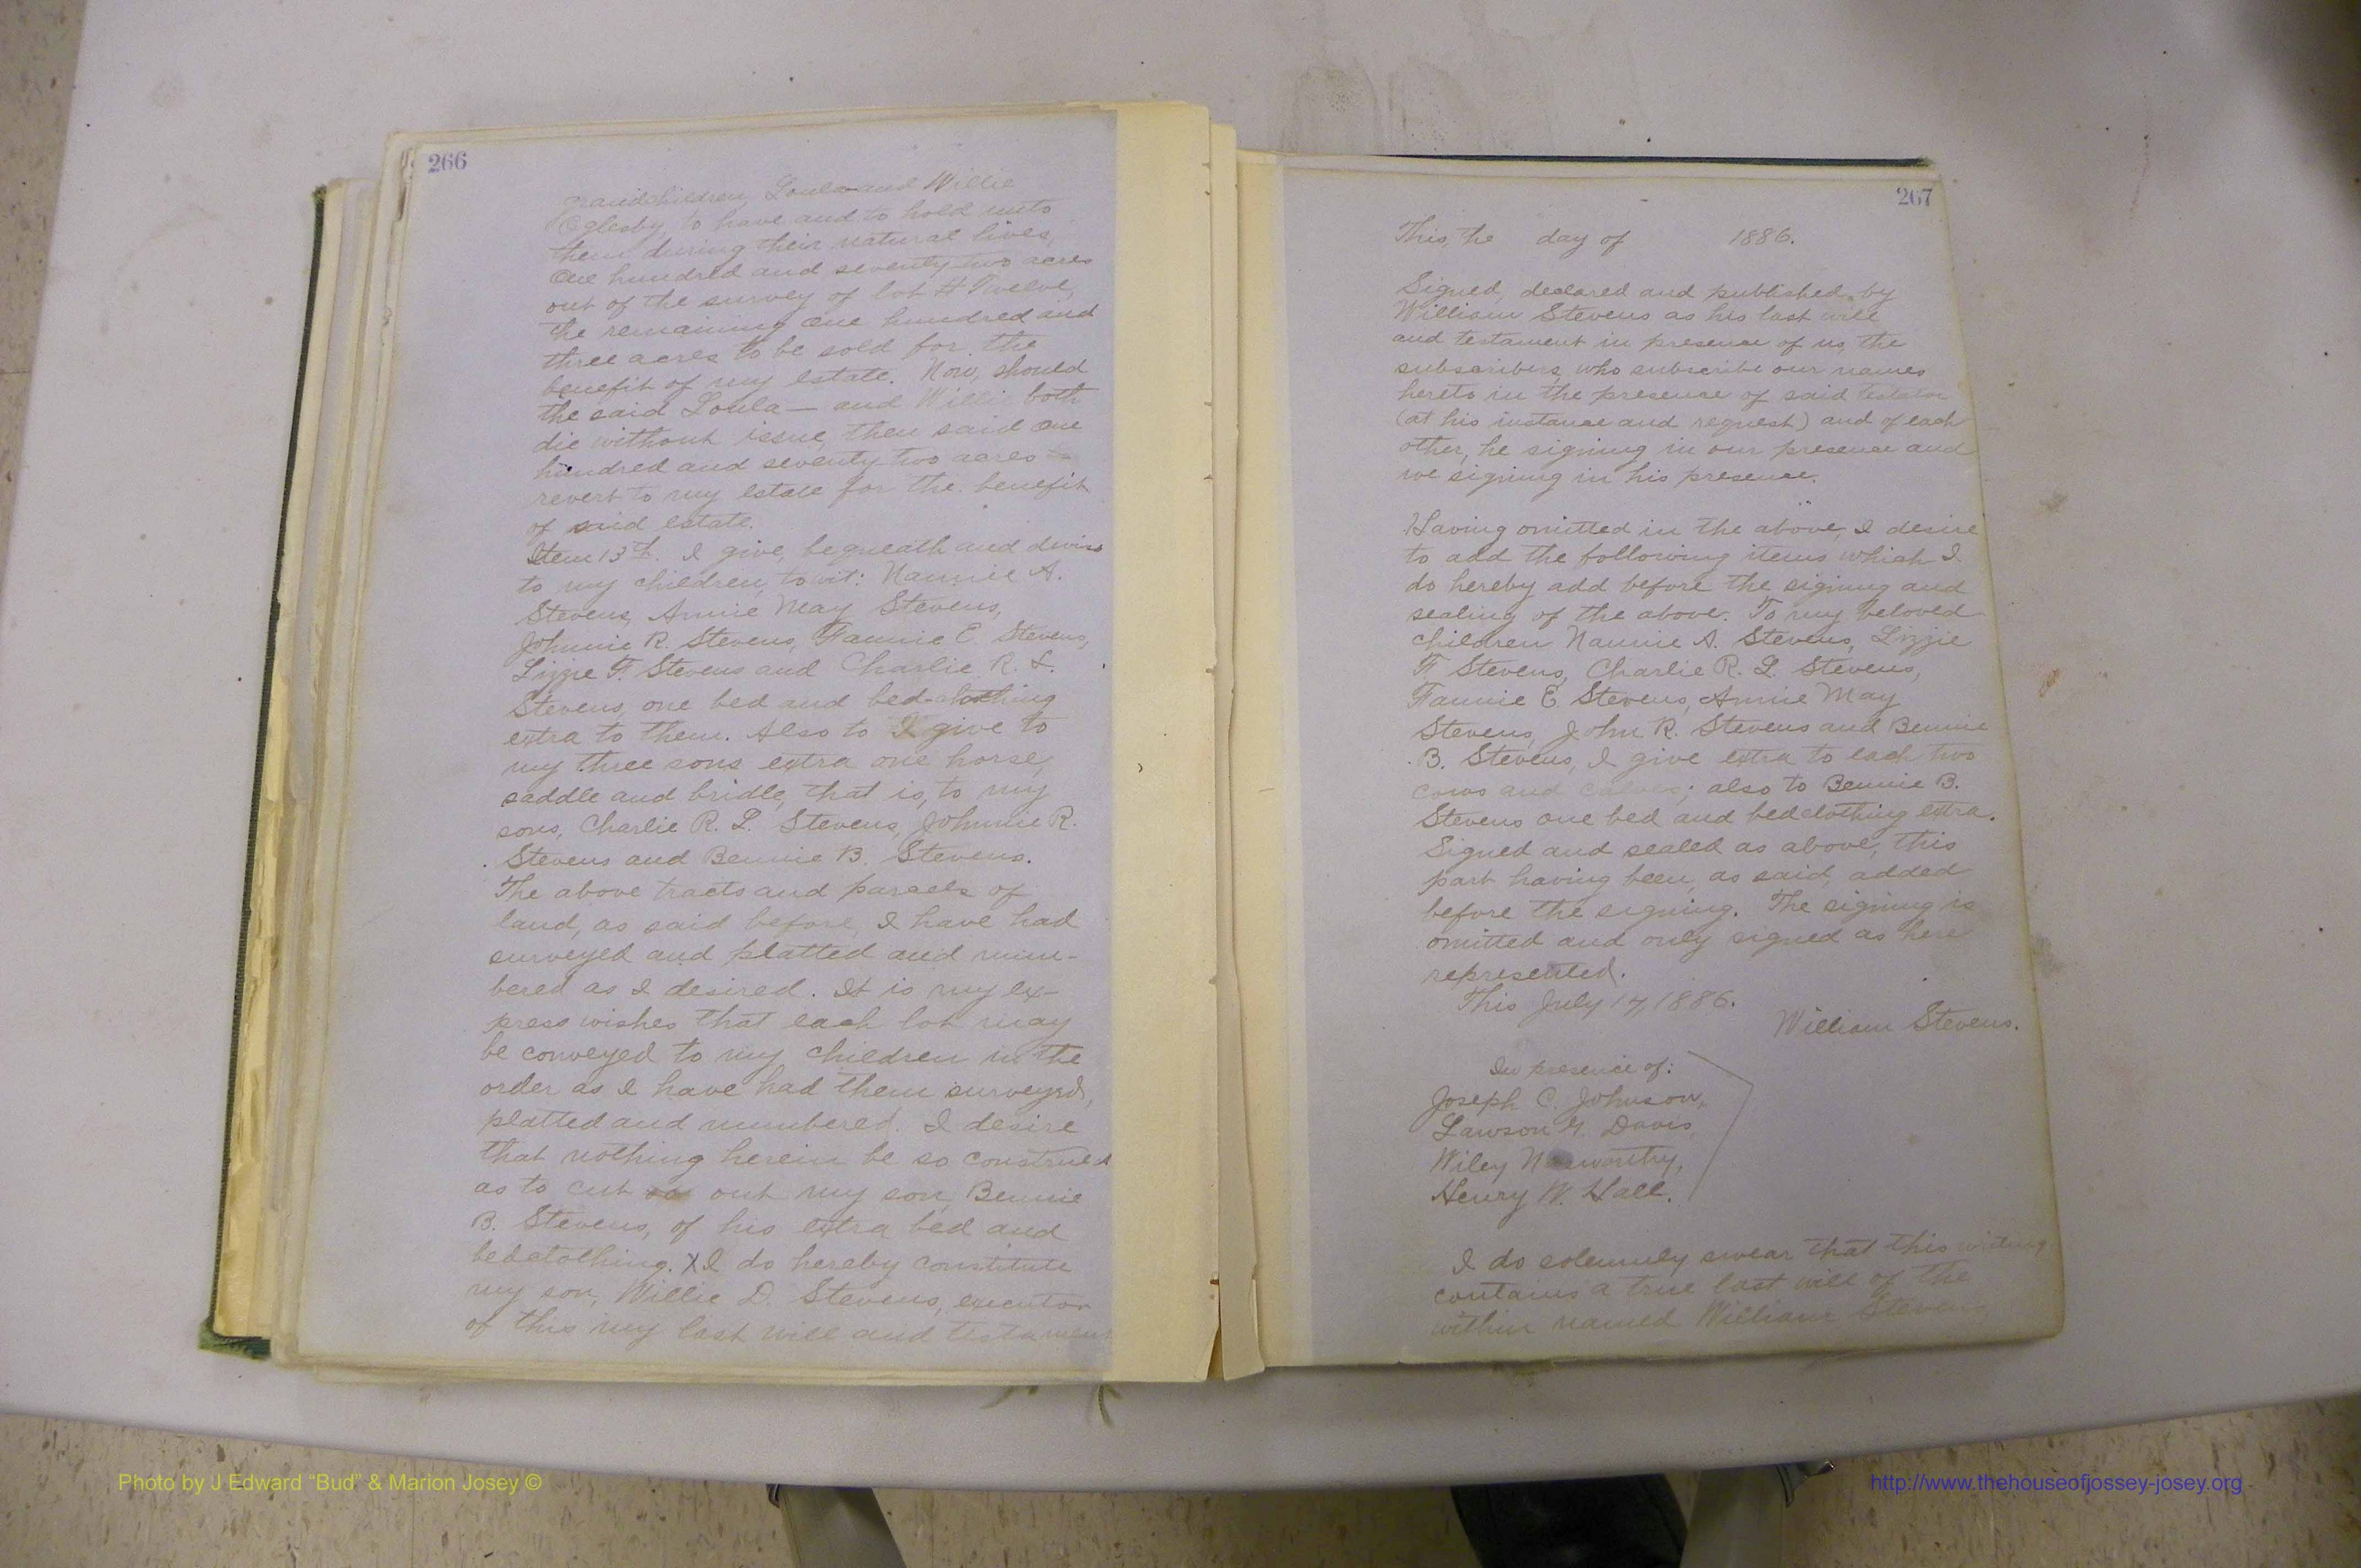 266
grandchildren, Loula and Willie
Oglesby, to have and to hold unto
them during their natural lives,
One hundred and seventy two acres
out of the survey of lot # Twelve,
the remaining one hundred and
three acres to be sold for the
benefit of my estate. Now, should
the said Loula — and Willie both
die without issue, then said one
hundred and seventy two acres
revert to my estate for the benefit
of said estate.
Item 13th. I give, bequeath and devise
to my children, towit: Nannie A.
Stevens, Annie May Stevens,
Johnnie R. Stevens, Fannie E. Stevens,
Lizzie F. Stevens and Charlie R. L.
Stevens, one bed and bed-clothing
extra to them. Also to I give to
my three sons extra one horse,
saddle and bridle, that is, to my
sons, Charlie R. L. Stevens, Johnnie R.
Stevens and Bennie B. Stevens.
The above tracts and parcels of
land, as said before, I have had
surveyed and platted and num-
bered as I desired. It is my ex-
press wishes that each lot may
be conveyed to my children in the
order as I have had them surveyed,
platted and numbered. I desire
that nothing herein be so construed
as to cut out my son, Bennie
B. Stevens, of his extra bed and
bedclothing. X I do hereby constitute
my son, Willie D. Stevens, executor
of this my last will and testament
267
This, the day of 1886.
Signed, declared and published by
William Stevens as his last will
and testament in presence of us, the
subscribers, who subscribe our names
hereto in the presence of said testator
(at his instance and request) and of each
other, he signing in our presence and
we signing in his presence.
Having omitted in the above, I desire
to add the following items which I
do hereby add before the signing and
sealing of the above. To my beloved
children Nannie A. Stevens, Lizzie
F. Stevens, Charlie R. L. Stevens,
Fannie E. Stevens, Annie May
Stevens, John R. Stevens and Bennie
B. Stevens, I give extra to each two
cows and calves; also to Bennie B.
Stevens one bed and bedclothing extra.
Signed and sealed as above, this
part having been, as said, added
before the signing. The signing is
omitted and only signed as here
represented.
This July 17, 1886.
William Stevens.
In presence of:
Joseph C. Johnson,
Lawson G. Davis,
Wiley Norsworthy,
Henry W. Hall.
I do solemnly swear that this writing
contains a true last will of the
within named William Stevens,
Photo by J Edward “Bud” & Marion Josey ©
http://www.thehouseofjossey-josey.org